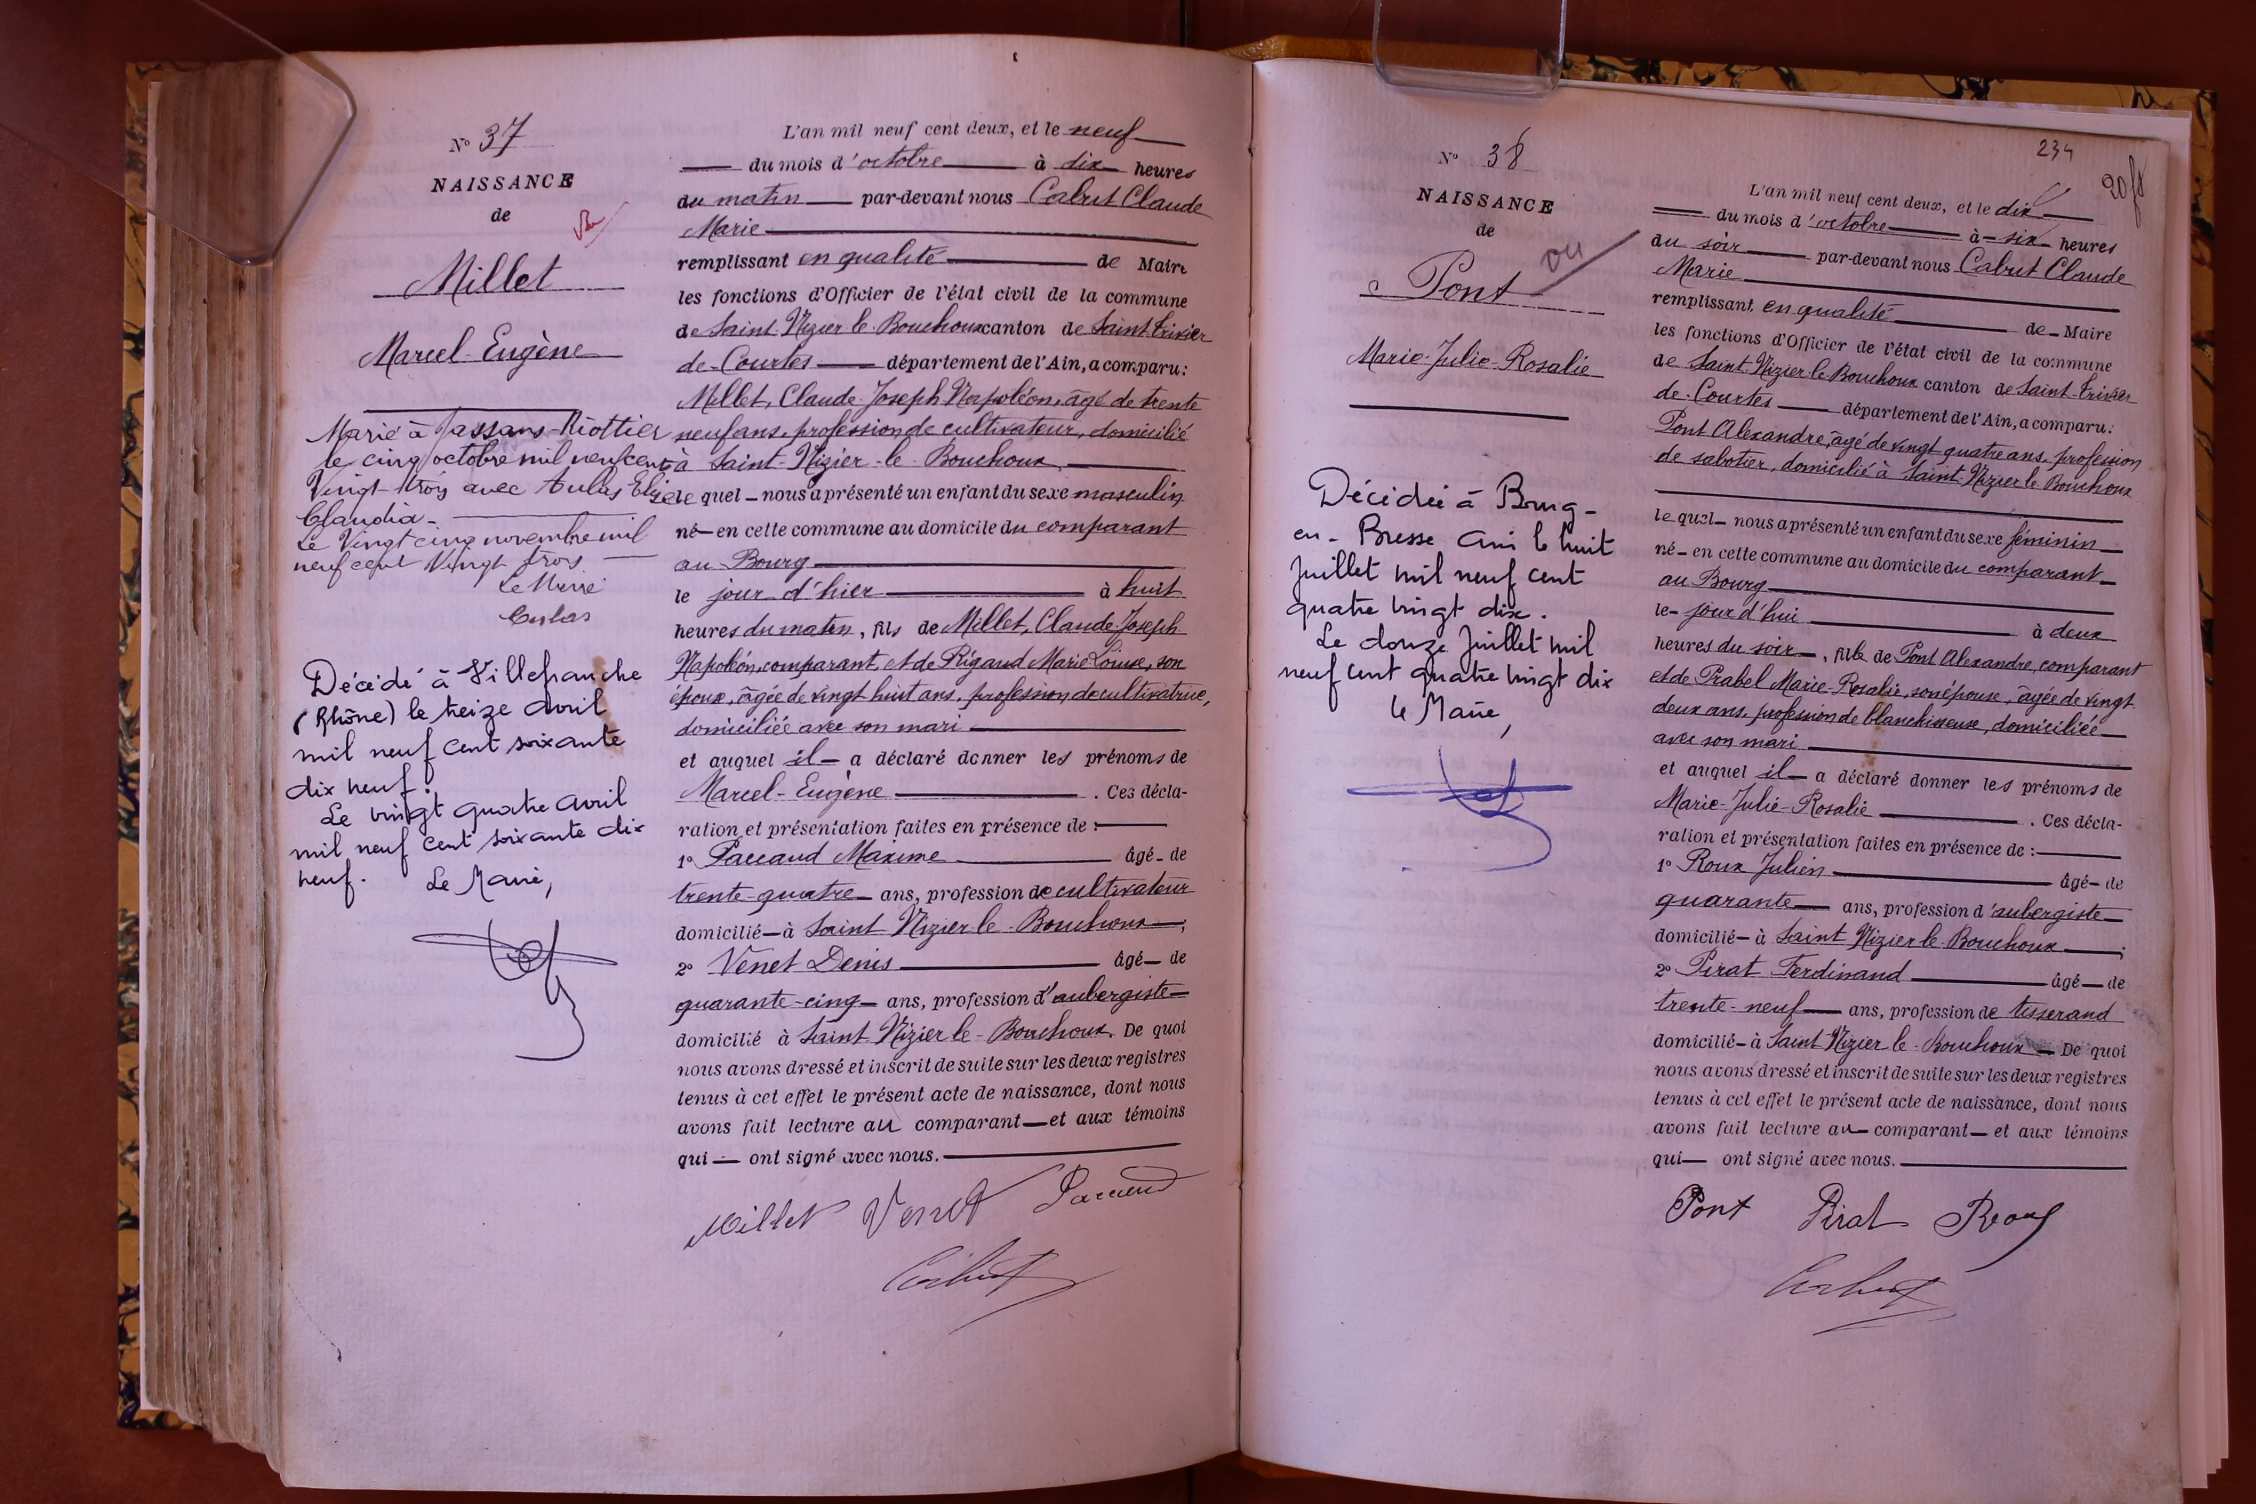 N° 37
NAISSANCE
de
Millet
Marcel-Eugène
Marié à Jassans-Riottier
le cinq octobre mil neuf cent
Vingt-trois avec Aulas
Claudia-
Le Vingt cinq novembre mil
neuf cent Vingt trois
Le Maire
Décédé à Villefranche
(Rhône) le treize avril
mil neuf cent soixante
dix neuf.
Le vingt quatre avril
mil neuf cent soixante dix
neuf. Le Maire,
L'an mil neuf cent deux, et le neuf
du mois d'octobre à dix heures
du matin par-devant nous Cabut Claude
Marie
remplissant en qualité de Maire
les fonctions d'Officier de l'état civil de la commune
de Saint-Nizier-le-Bouchoux canton de Saint-Trivier
de-Courtes département de l'Ain, a comparu:
Millet, Claude-Joseph Napoléon, âgé de trente
neuf ans, profession de cultivateur, domicilié
à Saint-Nizier-le-Bouchoux,
le quel nous a présenté un enfant du sexe masculin
né en cette commune au domicile du comparant
au Bourg
le jour d'hier à huit
heures du matin, fils de Millet, Claude-Joseph
Napoléon, comparant, et de Rigaud Marie Louise, son
épouse, âgée de vingt huit ans, profession de cultivatrice,
domiciliée avec son mari
et auquel il a déclaré donner les prénoms de
Marcel-Eugène . Ces décla-
ration et présentation faites en présence de :
1° Paccaud Maxime âgé de
trente-quatre ans, profession de cultivateur
domicilié à Saint Nizier-le-Bouchoux ;
2° Venet Denis âgé de
quarante-cinq ans, profession d'aubergiste
domicilié à Saint Nizier le-Bouchoux. De quoi
nous avons dressé et inscrit de suite sur les deux registres
tenus à cet effet le présent acte de naissance, dont nous
avons fait lecture au comparant et aux témoins
qui ont signé avec nous.
Millet Venet Paccaud
Cabut
234
N° 38
NAISSANCE
de
Pont
ou
Marie-Julie-Rosalie
Décédée à Bourg-
en-Bresse Ain le huit
Juillet mil neuf cent
quatre vingt dix.
Le douze Juillet mil
neuf cent quatre vingt dix
le Maire,
L'an mil neuf cent deux, et le dix
du mois d'octobre à six heures
du soir par-devant nous Cabut Claude
Marie
remplissant en qualité de Maire
les fonctions d'Officier de l'état civil de la commune
de Saint-Nizier-le-Bouchoux canton de Saint-Trivier
de-Courtes département de l'Ain, a comparu:
Pont Alexandre, âgé de vingt quatre ans, profession
de sabotier, domicilié à Saint-Nizier le Bouchoux
le quel nous a présenté un enfant du sexe féminin
né en cette commune au domicile du comparant
au Bourg
le jour d'hui à deux
heures du soir, fille de Pont Alexandre, comparant
et de Prabel Marie-Rosalie, son épouse, âgée de vingt
deux ans, profession de blanchisseuse, domiciliée
avec son mari
et auquel il a déclaré donner les prénoms de
Marie-Julie-Rosalie . Ces décla-
ration et présentation faites en présence de :
1° Roux Julien âgé de
quarante ans, profession d'aubergiste
domicilié à Saint Nizier le-Bouchoux ;
2° Pirat Ferdinand âgé de
trente-neuf ans, profession de tisserand
domicilié à Saint Nizier le-Bouchoux De quoi
nous avons dressé et inscrit de suite sur les deux registres
tenus à cet effet le présent acte de naissance, dont nous
avons fait lecture au comparant et aux témoins
qui ont signé avec nous.
Pont Pirat Roux
Cabut